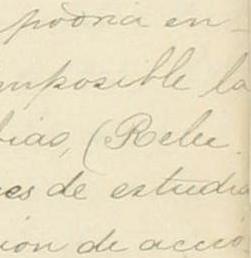 podria en-
mposible la
bias, (Rele
es de estudi
ion de accio